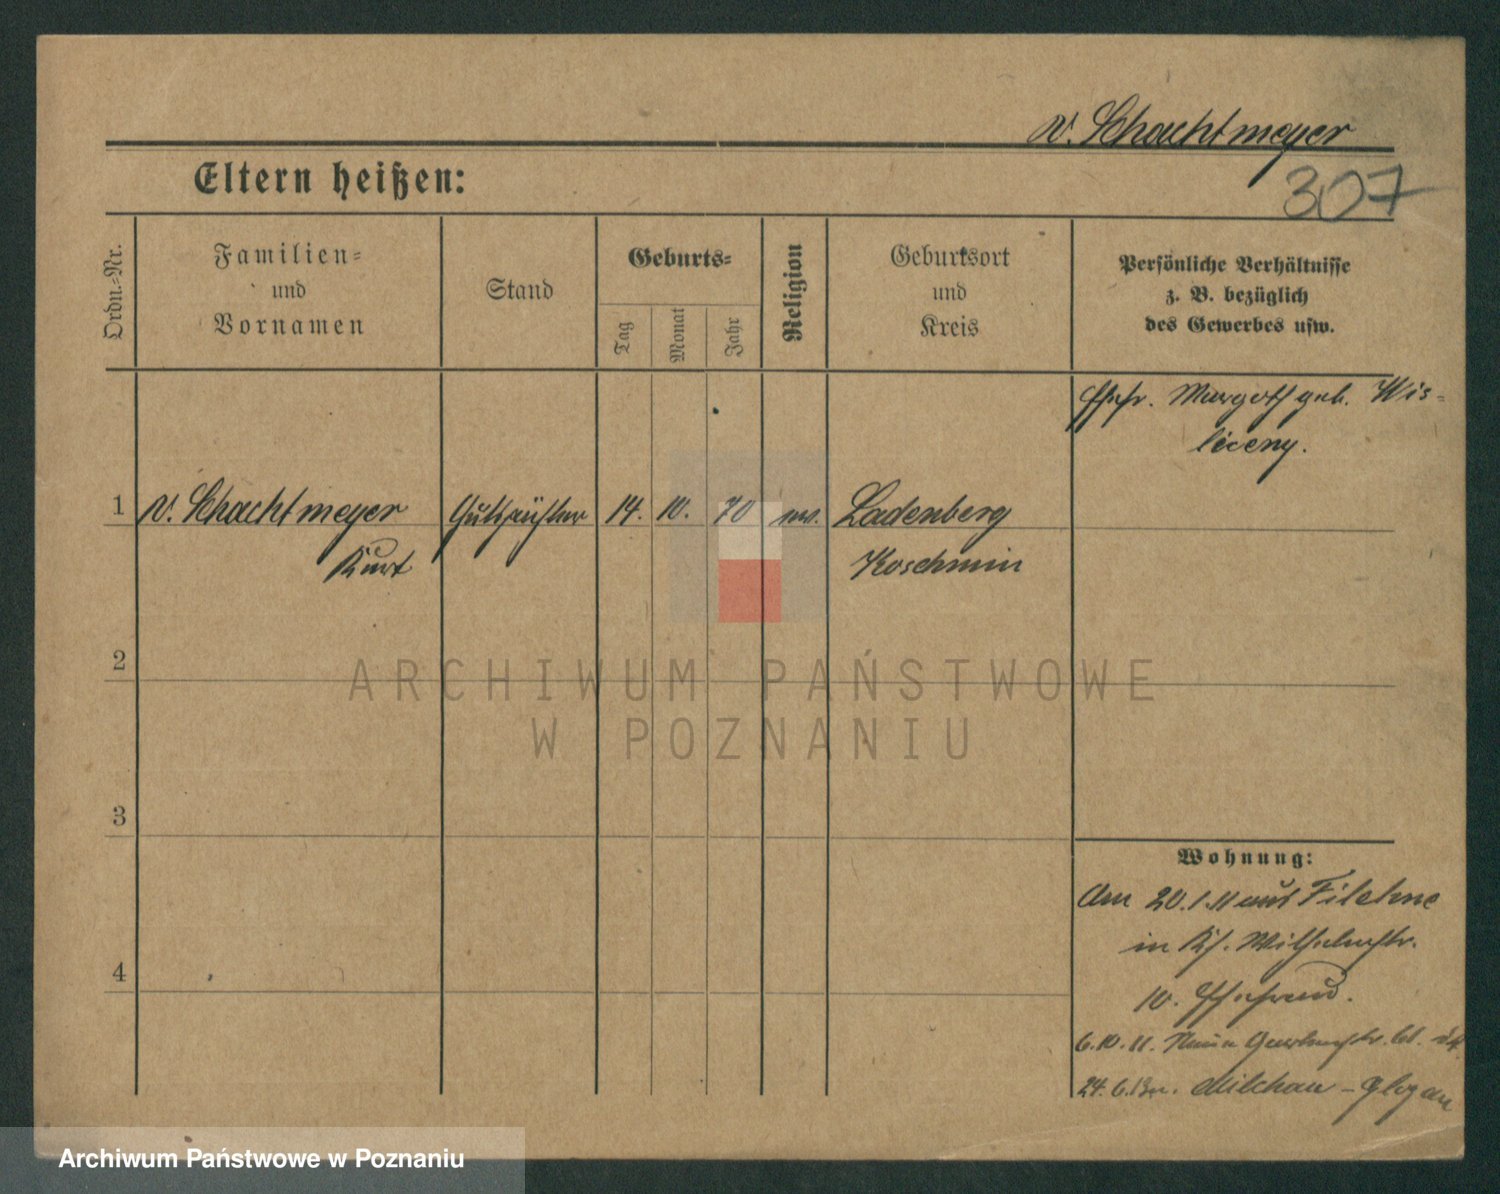 v. Schachtmeyer
Eltern heißen:
307
Ordn.-Nr.
Familien-
und
Vornamen
Stand
Geburts-
Tag
Monat
Jahr
Religion
Geburtsort
und
Kreis
Persönliche Verhältnisse
z. B. bezüglich
des Gewerbes usw.
Ehefr. Margot geb. Wis-
liceny.
1 v. Schachtmeyer Gutspächter 14. 10. 70 ev. Ladenberg
Kurt Koschmin
2
ARCHIWUM PAŃSTWOWE
W POZNANIU
3
Wohnung:
Am 20.1.11 aus Filehne
in Wilhelmstr.
4
10. Ehefrau.
6.10.11. Neue Gartenstr. 61.
24.6.13 Milchau - Glogau
Archiwum Państwowe w Poznaniu